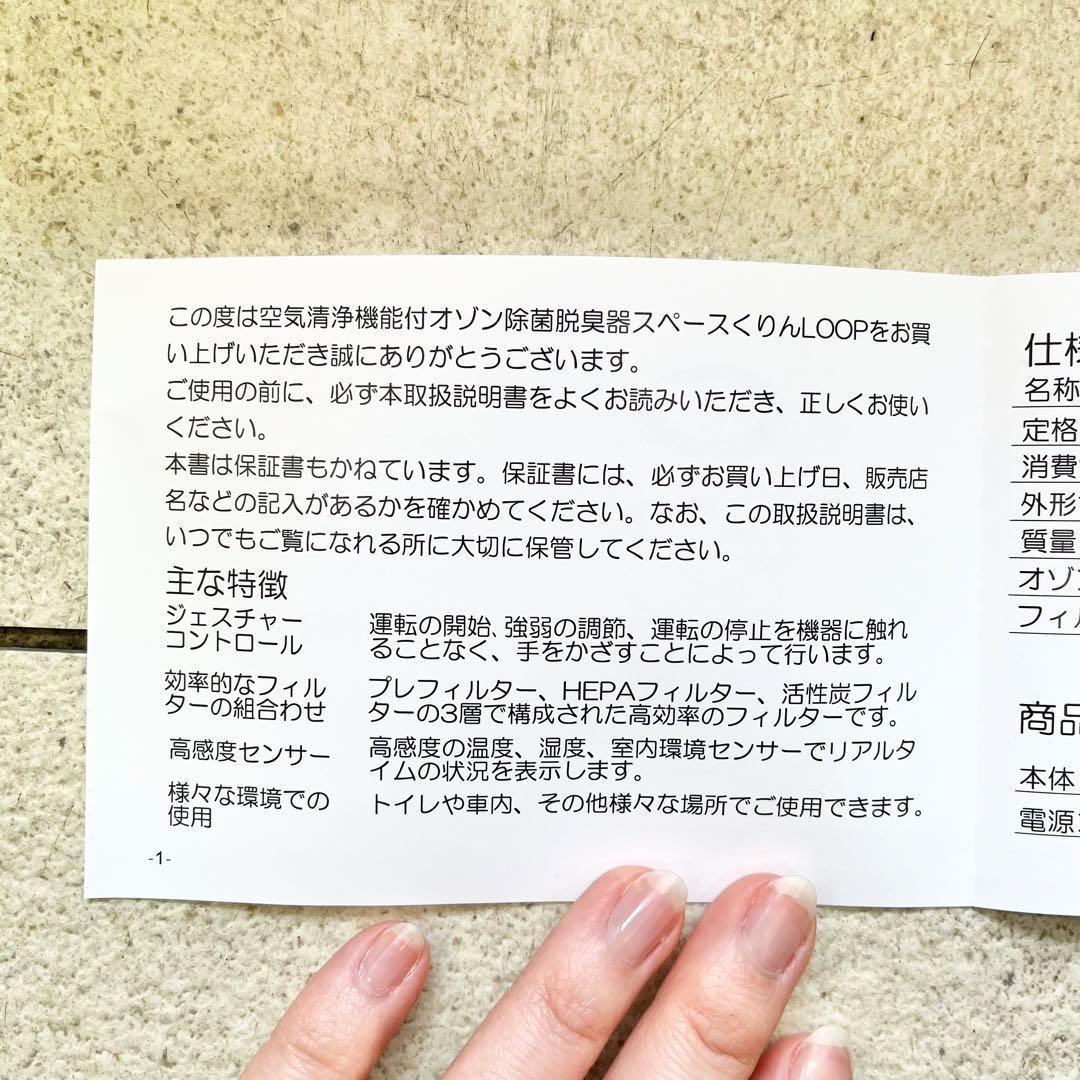 この度は空気清浄機能付オゾン除菌脱臭器スペースくりんLOOPをお買
い上げいただき誠にありがとうございます。
ご使用の前に、必ず本取扱説明書をよくお読みいただき、正しくお使い
ください。
本書は保証書もかねています。保証書には、必ずお買い上げ日、販売店
名などの記入があるかを確かめてください。なお、この取扱説明書は、
いつでもご覧になれる所に大切に保管してください。
主な特徴
ジェスチャー
コントロール
運転の開始、強弱の調節、運転の停止を機器に触れ
ることなく、手をかざすことによって行います。
効率的なフィル
ターの組合わせ
プレフィルター、HEPAフィルター、活性炭フィル
ターの3層で構成された高効率のフィルターです。
高感度センサー
高感度の温度、湿度、室内環境センサーでリアルタ
イムの状況を表示します。
様々な環境での
使用
トイレや車内、その他様々な場所でご使用できます。
-1-
仕様
名称
定格
消費
外形
質量
オゾ
フィ
商品
本体
電源